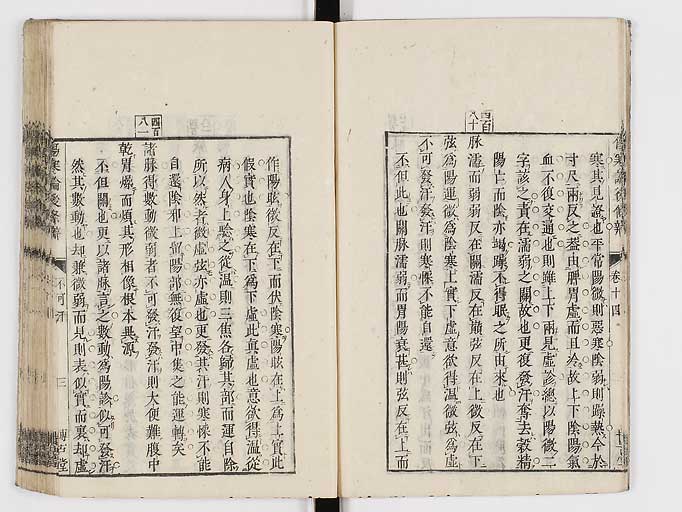 傷寒論後條辨
卷十四
寒其見證也平常陽微則惡寒陰弱則躁熱今於
寸尺兩反之葢由脾胃虛而且冷故上下陰陽氣
血不復交通也則雖上下兩見虛診總以陽微二
字該之責在濡弱之關故也更復發汗奪去穀精
陽亡而陰亦竭躁不得眠之所由來也
四百八十
脉濡而弱弱反在關濡反在巔弦反在上微反在下
弦爲陽運微爲陰寒上實下虛意欲得温微弦爲虛
不可發汗發汗則寒慄不能自還
不但此也關脉濡弱而胃陽衰甚則弦反在上而
作陽眩微反在下而伏陰寒陽眩在上爲上實此
假實也陰寒在下爲下虛此眞虛也意欲得温從
病人身上驗之從温則三焦各歸其部而運自除
所以然者微虛弦亦虛也更發其汗則寒慄不能
自還陰邪上㒺陽部無復望中焦之能運轉矣
四百八一
諸脉得數動微弱者不可發汗發汗則大便難腹中
乾胃燥而煩其形相像根本異源
不但關也更以諸脉言之數動爲陽診似可發汗
然其數動也却兼微弱而見則表似實而裏却虛
傷寒論後條辨
不可汗
三